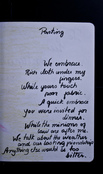 Parting
We embrace
Rich cloth under my
fingers
While yours touch
poor fabric.
A quick embrace
you were invited for
dinner
While the minions of
law are after me.
We talk about the weather
and our lasting friendship
Anything else would be too
bitter.